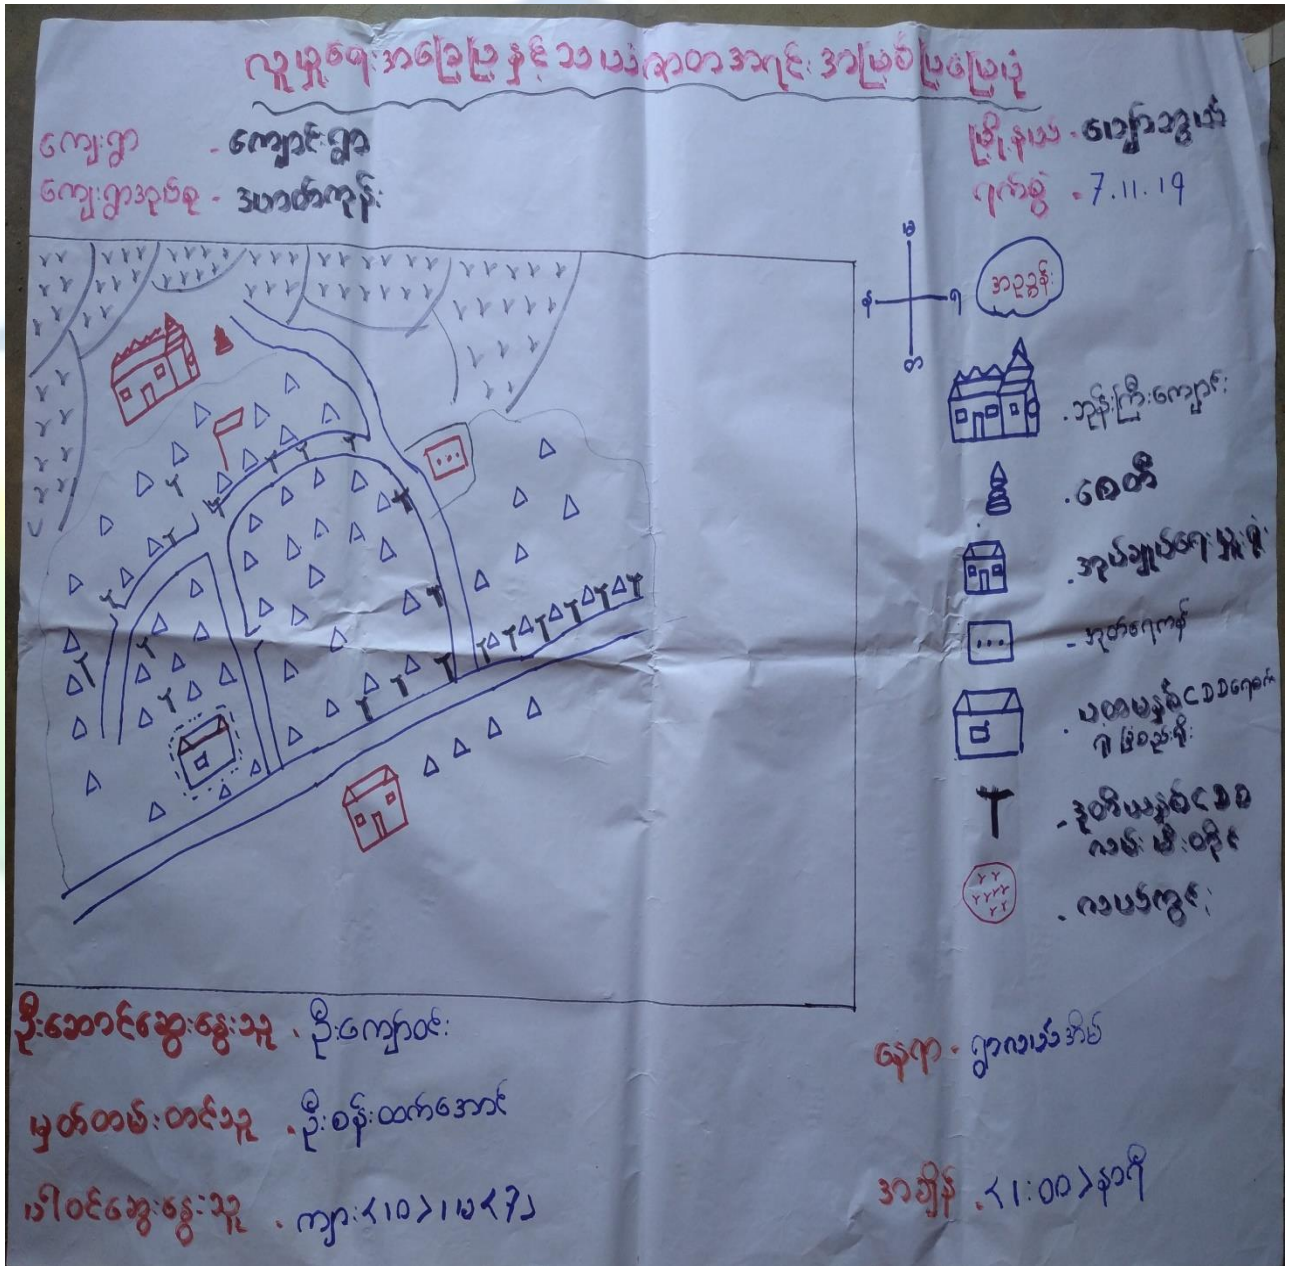 လူမှုရေးအခြေပြနှင့် သယံဇာတအရင်းအမြစ်ပြမြေပုံ
ကျေးရွာ - ကျောင်းရွာ
ကျေးရွာအုပ်စု - ဒဟတ်ကုန်း
မြို့နယ် - ပျော်ဘွယ်
ရက်စွဲ - 7.11.19
မ
န ရ
တ
အညွှန်း
- ဘုန်းကြီးကျောင်း
- စေတီ
- အုပ်ချုပ်ရေးမှူးရုံး
- အုတ်ရေကန်
- ပထမနှစ် CDD ရေစက်
- ဒုတိယနှစ် CDD
လမ်းမီးတိုင်
- လယ်ကွင်း
ဦးဆောင်ဆွေးနွေးသူ - ဦးကျော်ဝင်း
မှတ်တမ်းတင်သူ - ဦးစန်းထက်အောင်
ပါဝင်ဆွေးနွေးသူ - ကျား<၁၀>၊မ<၇>
နေရာ - ရွာလယ်အိမ်
အချိန် - <၁:၀၀>နာရီ